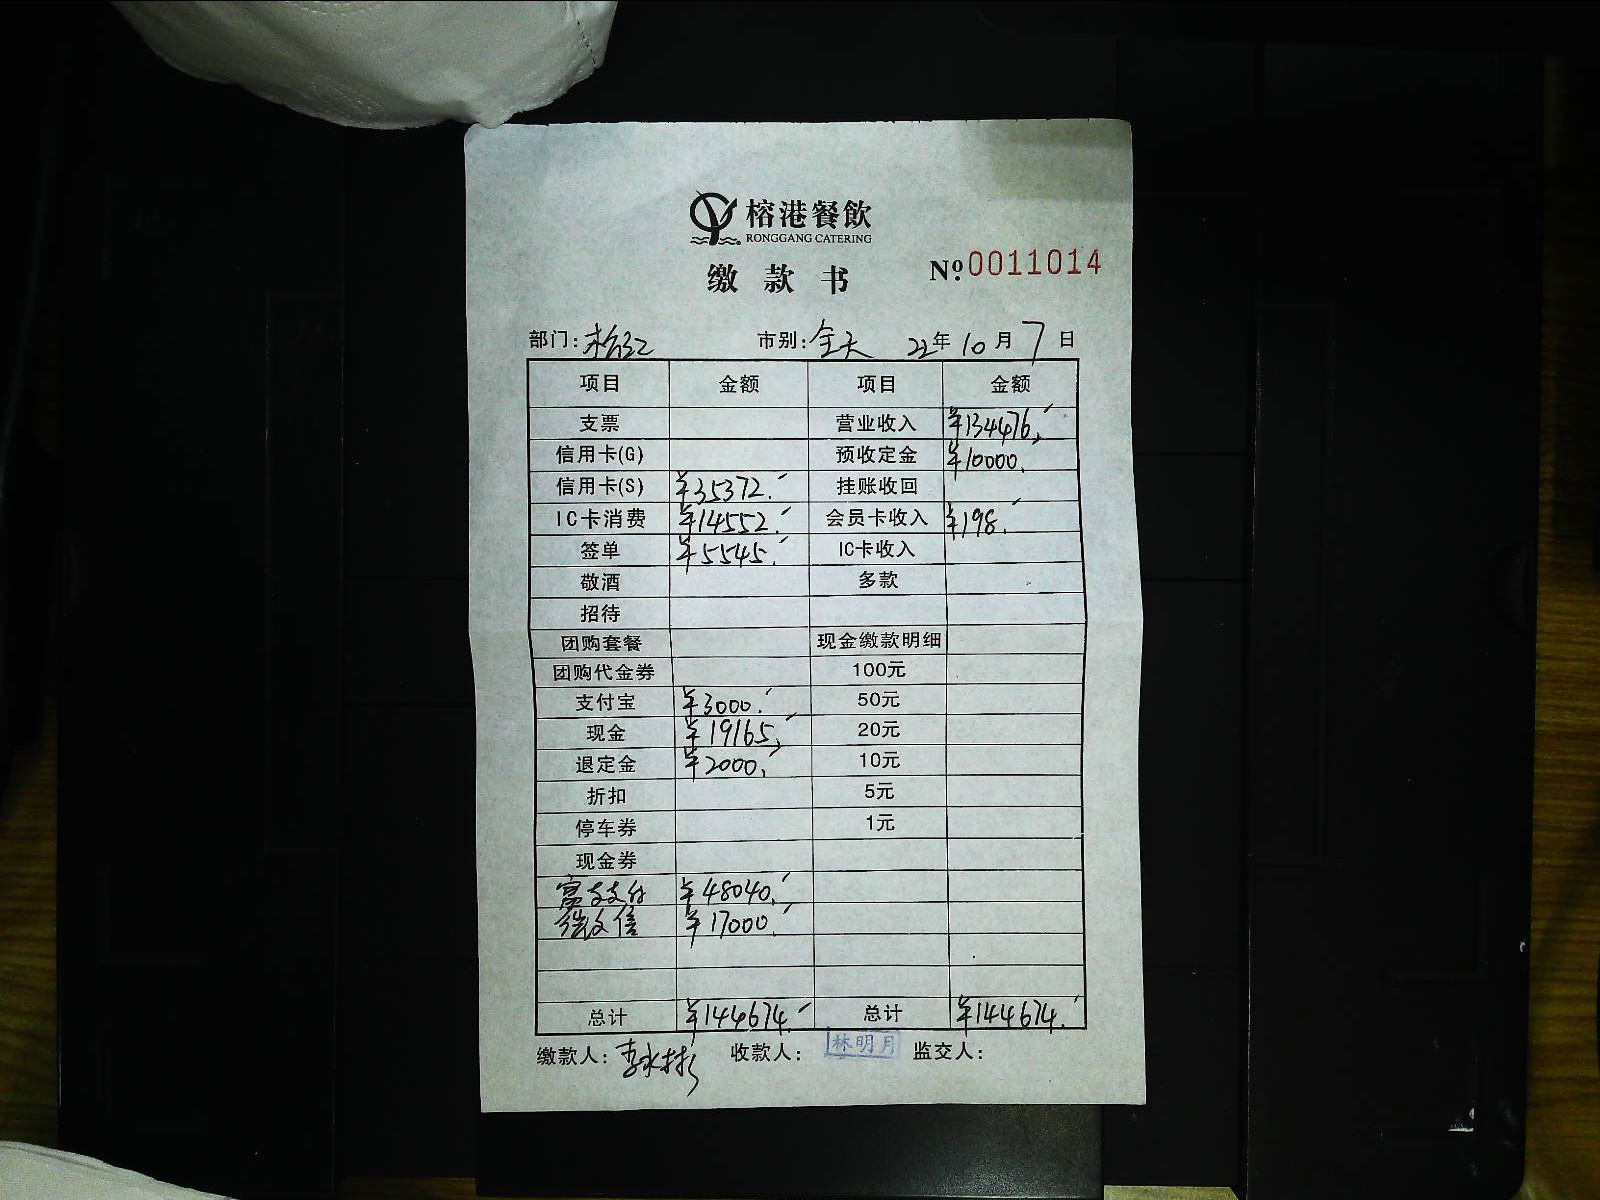 榕港餐飲
RONGGANG CATERING
缴款书 Nº 0011014
部门: 市别:全天 22年10月7日
项目 金额 项目 金额
支票 营业收入 ¥134476.
信用卡(G) 预收定金 ¥10000.
信用卡(S) ¥35372. 挂账收回
IC卡消费 ¥14552. 会员卡收入 ¥198.
签单 ¥5545. IC卡收入
敬酒 多款
招待
团购套餐 现金缴款明细
团购代金券 100元
支付宝 ¥3000. 50元
现金 ¥19165. 20元
退定金 ¥2000. 10元
折扣 5元
停车券 1元
现金券
富支付 ¥48040.
微信 ¥17000.
总计 ¥144674. 总计 ¥144674.
缴款人:李永彬 收款人: 林明月 监交人: